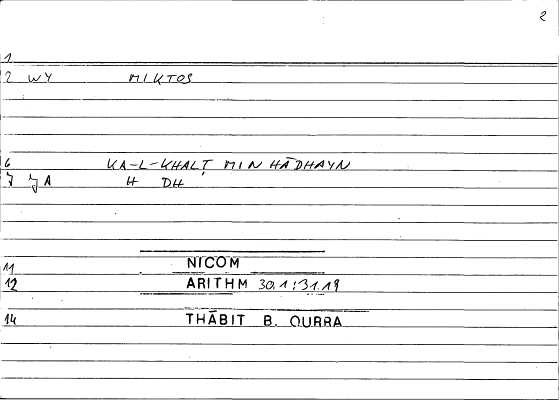 2
1
2 WY MIKTOS
6 KA-L-KHALṬ MIN HĀDHAYN
7 JA H DH
11 NICOM
12 ARITHM 30.1:31.19
14 THĀBIT B. QURRA